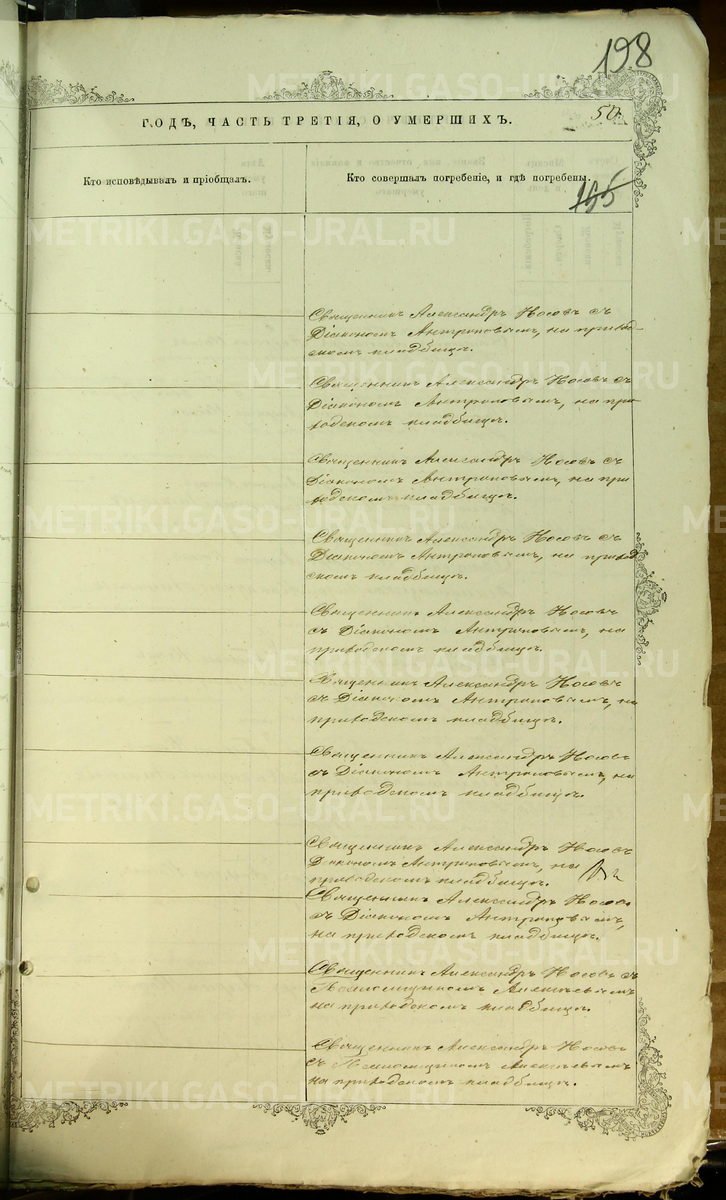 198
ГОДЪ, ЧАСТЬ ТРЕТІЯ, О УМЕРШИХЪ.
50.
Кто исповѣдывалъ и пріобщалъ.
Кто совершалъ погребеніе, и гдѣ погребены.
Священникъ Александръ Носовъ съ
Діакономъ Антроповымъ, на приход-
скомъ кладбищѣ.
Священникъ Александръ Носовъ съ
Діакономъ Антроповымъ, на при-
ходскомъ кладбищѣ.
Священникъ Александръ Носовъ съ
Діакономъ Антроповымъ, на при
ходскомъ кладбищѣ.
Священникъ Александръ Носовъ съ
Діакономъ Антроповымъ, на приход
скомъ кладбищѣ.
Священникъ Александръ Носовъ
съ Діакономъ Антроповымъ, на
приходскомъ кладбищѣ.
Священникъ Александръ Носовъ
съ Діакономъ Антроповымъ, на
приходскомъ кладбищѣ.
Священникъ Александръ Носовъ
съ Діакономъ Антроповымъ, на
приходскомъ кладбищѣ.
Священникъ Александръ Носовъ
Діакономъ Антроповымъ, на
приходскомъ кладбищѣ.
Священникъ Александръ Носовъ
съ Діакономъ Антроповымъ,
на приходскомъ кладбищѣ.
Священникъ Александръ Носовъ съ
Псаломщикомъ
на приходскомъ кладбищѣ.
Священникъ Александръ Носовъ
съ Псаломщикомъ
на приходскомъ кладбищѣ.
METRIKI.GASO-URAL.RU